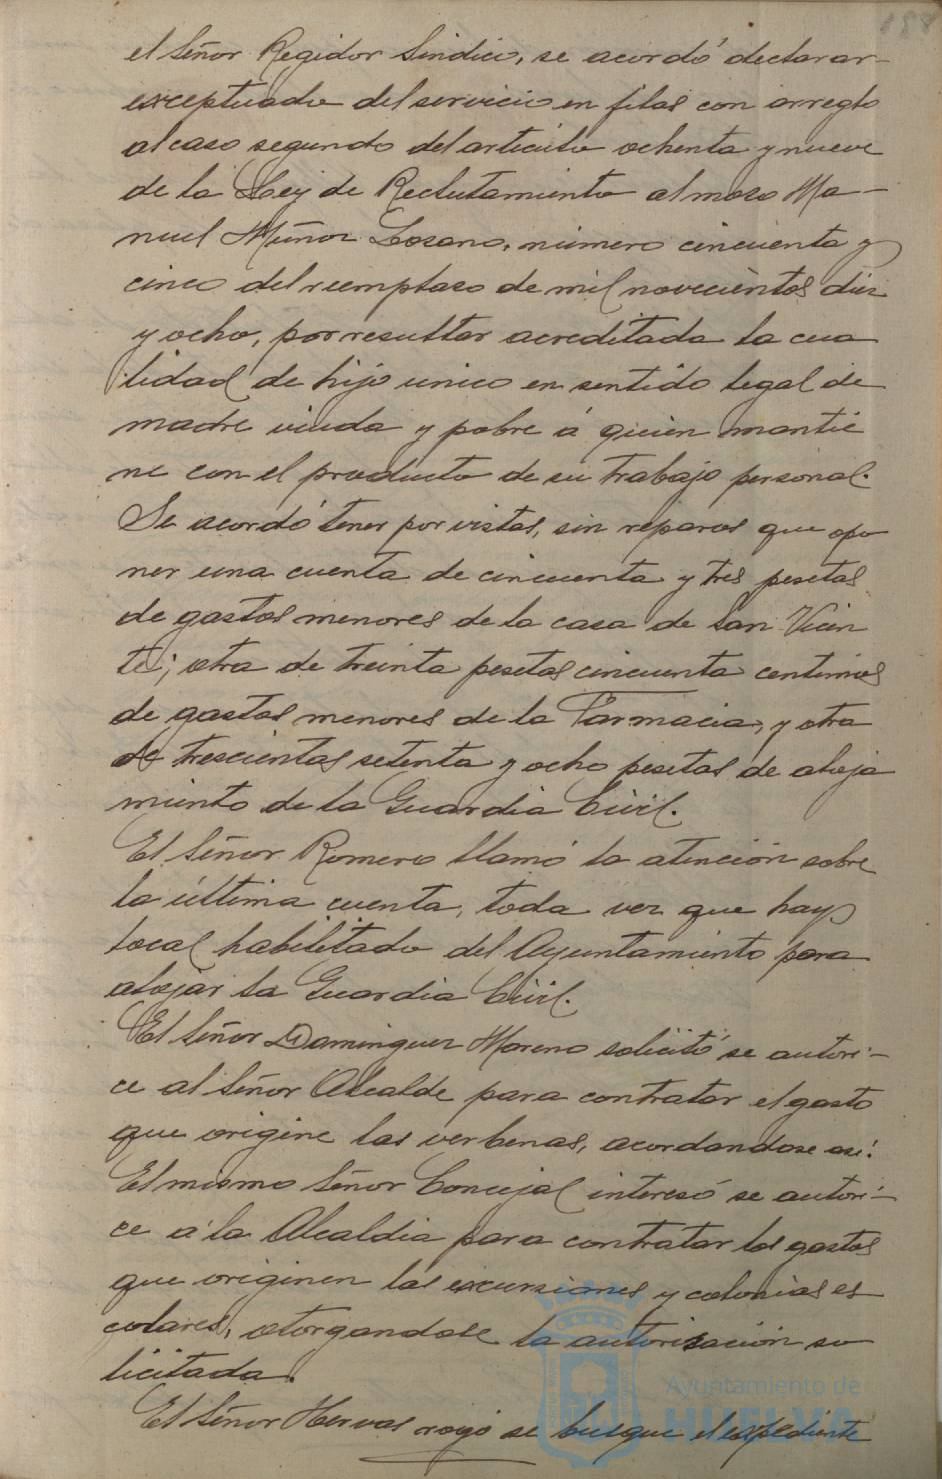 el Señor Regidor Sindico, se acordó declarar-
exceptuado del servicio en filas con arreglo
al caso segundo del articulo ochenta y nueve
de la Ley de Reclutamiento al moso Ma-
nuel Muñoz Losano, número cincuenta y
cinco del reemplaso de mil novecientos diez
y ocho, por resultar acreditada la cua
lidad de hijo unico en sentido legal de
madre viuda y pobre á quien mantie
ne con el producto de su trabajo personal.
Se acordó tener por vistas, sin reparos que opo
ner una cuenta de cincuenta y tres pesetas
de gastos menores de la casa de San Vicen
te; otra de treinta pesetas cincuenta centimos
de gastos menores de la Farmacia, y otra
de trescientas setenta y ocho pesetas de aloja
miento de la Guardia Civil.
El Señor Romero llamó la atención sobre
la última cuenta, toda vez que hay
local habilitado del Ayuntamiento para
alojar la Guardia Civil.
El Señor Dominguez Moreno solicitó se autori-
ce al Señor Alcalde para contratar el gasto
que origine las verbenas, acordandose asi.
El mismo Señor Concejal interesó se autori-
ce a la Alcaldia para contratar los gastos
que originen las excursiones y colonias es
colares, otorgandose la autorisación so
licitada.
El Señor Hervas rogó se busque el expediente
Ayuntamiento de
HUELVA